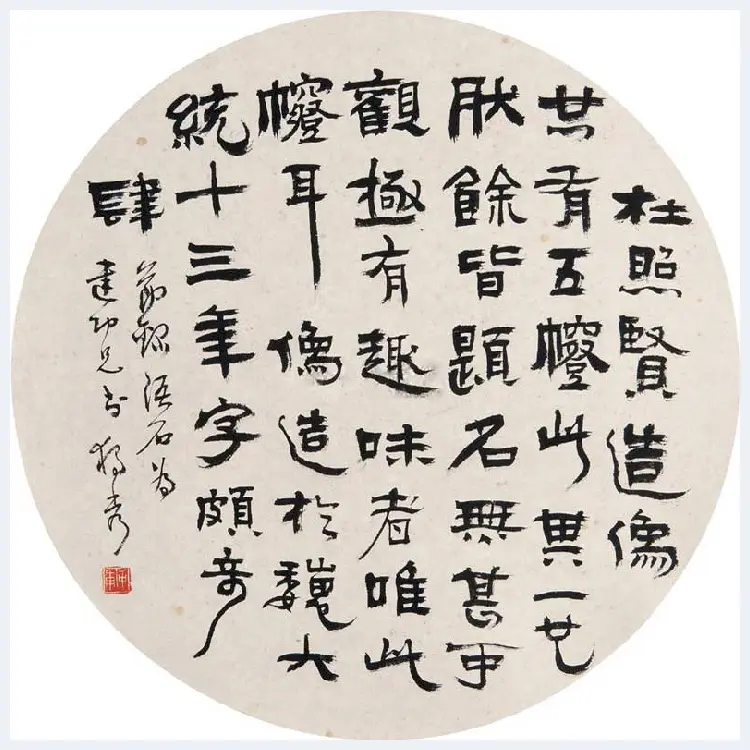 杜照賢造像
共有五㡧此其一也
肰餘皆題名無甚可
觀極有趣味者唯此
㡧耳像造於魏大
統十三年字頗奇
肆
節錄語石為
建功兄書 獨秀